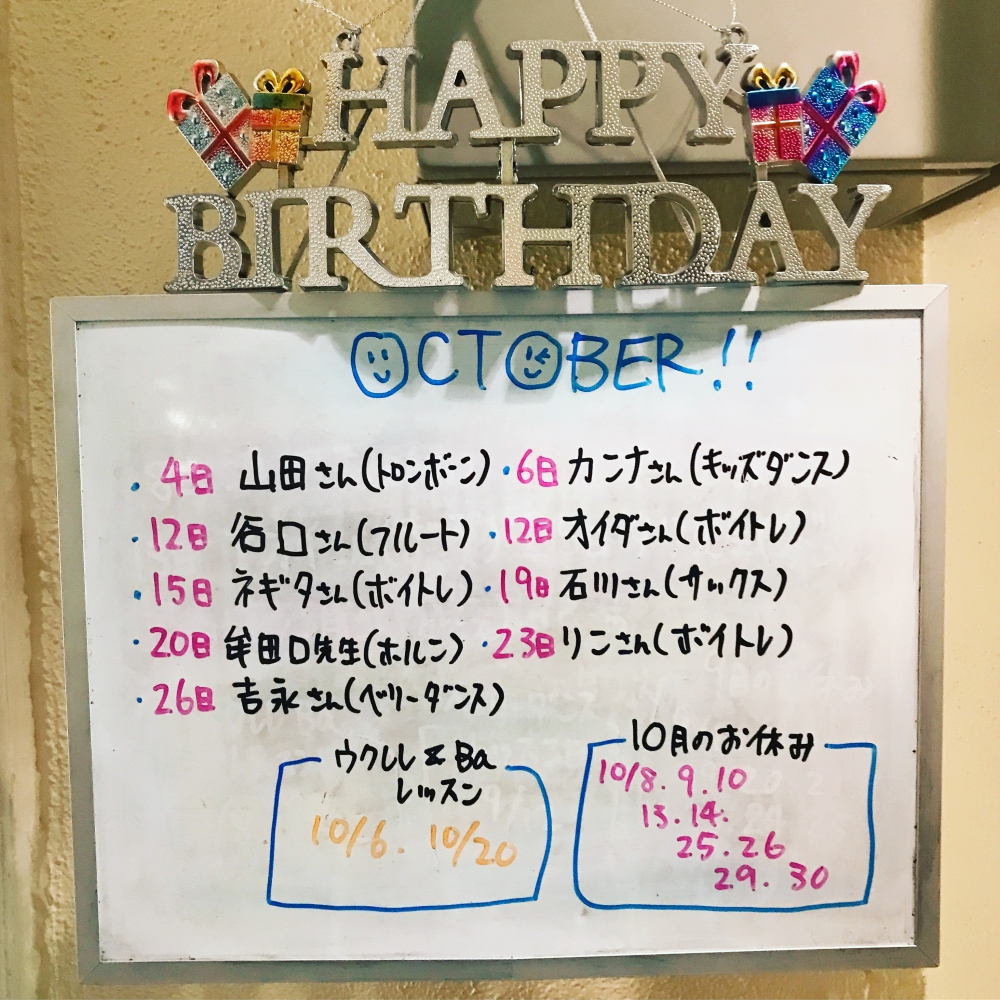 HAPPY
BIRTHDAY
OCTOBER!!
・4日 山田さん(トロンボーン) ・6日 カンナさん(キッズダンス)
・12日 谷口さん(フルート) ・12日 オイダさん(ボイトレ)
・15日 ネギタさん(ボイトレ) ・19日 石川さん(サックス)
・20日 牟田口先生(ホルン) ・23日 リンさん(ボイトレ)
・26日 吉永さん(ベリーダンス)
ウクレレ & Ba
レッスン
10/6. 10/20
10月のお休み
10/8.9.10
13.14.
25.26
29.30